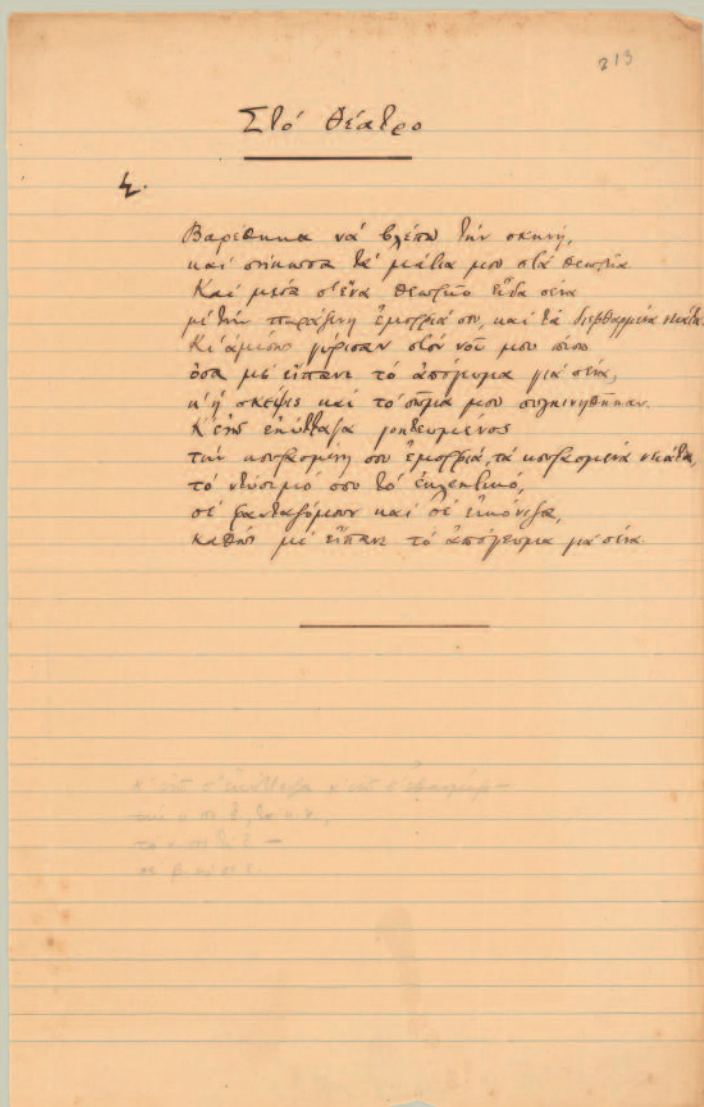 213
Στό θέατρο
Βαρέθηκα νά βλέπω τήν σκηνή,
καί σήκωσα τά μάτια μου στά θεωρεία.
Καί μέσα σ' ἕνα θεωρεῖο εἶδα σένα
μέ τήν παράξενη ἐμορφιά σου, καί τά διεφθαρμένα νειάτα.
Κι' ἀμέσως γύρισαν στόν νοῦ μου πίσω
ὅσα μέ εἴπανε τό ἀπόγευμα γιά σένα,
κ' ἡ σκέψις καί τό σῶμα μου συγκινήθηκαν.
Κ' ἐνῶ ἐκύτταζα γοητευμένος
τήν κουρασμένη σου ἐμορφιά, τά κουρασμένα νειάτα,
τό ντύσιμό σου τό ἐκλεκτικό,
σέ φανταζόμουν καί σέ εἰκόνιζα,
καθώς μέ εἴπανε τό ἀπόγευμα γιά σένα.